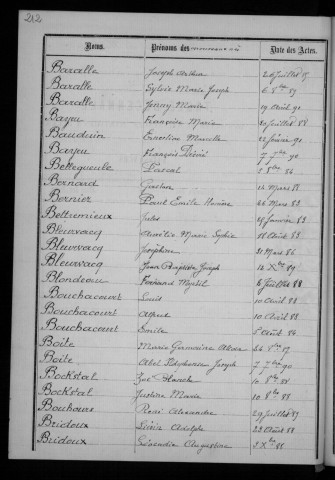 212
Noms. Prénoms des Date des Actes.
Baralle Joseph
Baralle Sylvie Marie Joseph 6 8bre 89
Baralle Jenny Marie 29 Août 90
Bayeu Françoise Marie 20 Juillet 88
Bauduin Ernestine 22 février 90
Bayeu François Désiré 7 7bre 90
Bettegneule Pascal 5 8bre 86
Bernard Gaston 14 Mars 88
Bernier Paul Emile 26 Mars 83
Bettremieux Jules 28 Janvier 83
Bleuwacq Aurélie Marie Sophie 18 Août 83
Bleuwacq Joséphine 31 Mars 86
Bleuwacq Jean Baptiste Joseph 14 Xbre 89
Blondeau Fernand Myrtil 8 Juillet 88
Bouchacourt Louis 10 Août 88
Bouchacourt Alfred 10 Août 88
Bouchacourt Emile 5 Août 86
Boite Marie Germaine 24 8bre 87
Boite Abel Joseph 7 7bre 90
Bockstal Zoé Blanche 10 8bre 88
Bockstal Justine Marie 10 8bre 88
Bouhours René Alexandre 29 Juillet 87
Bridoux Désiré Adolphe 23 Août 88
Bridoux Léocadie Augustine 3 Xbre 88